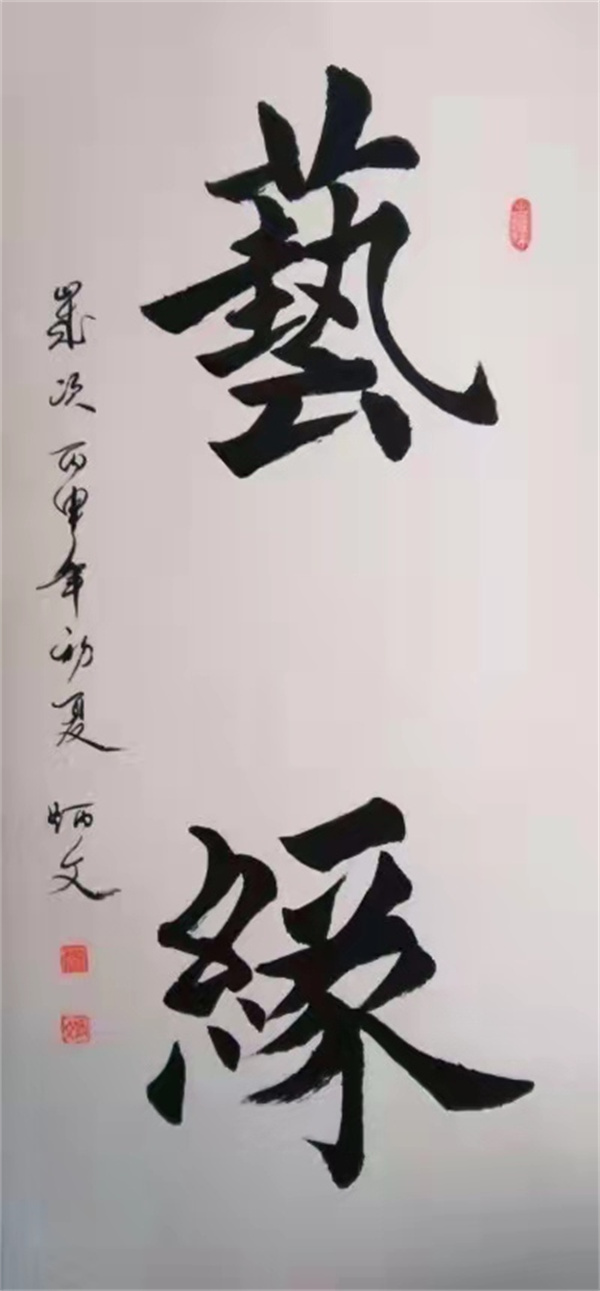 藝緣
歲次丙申年初夏 炳文